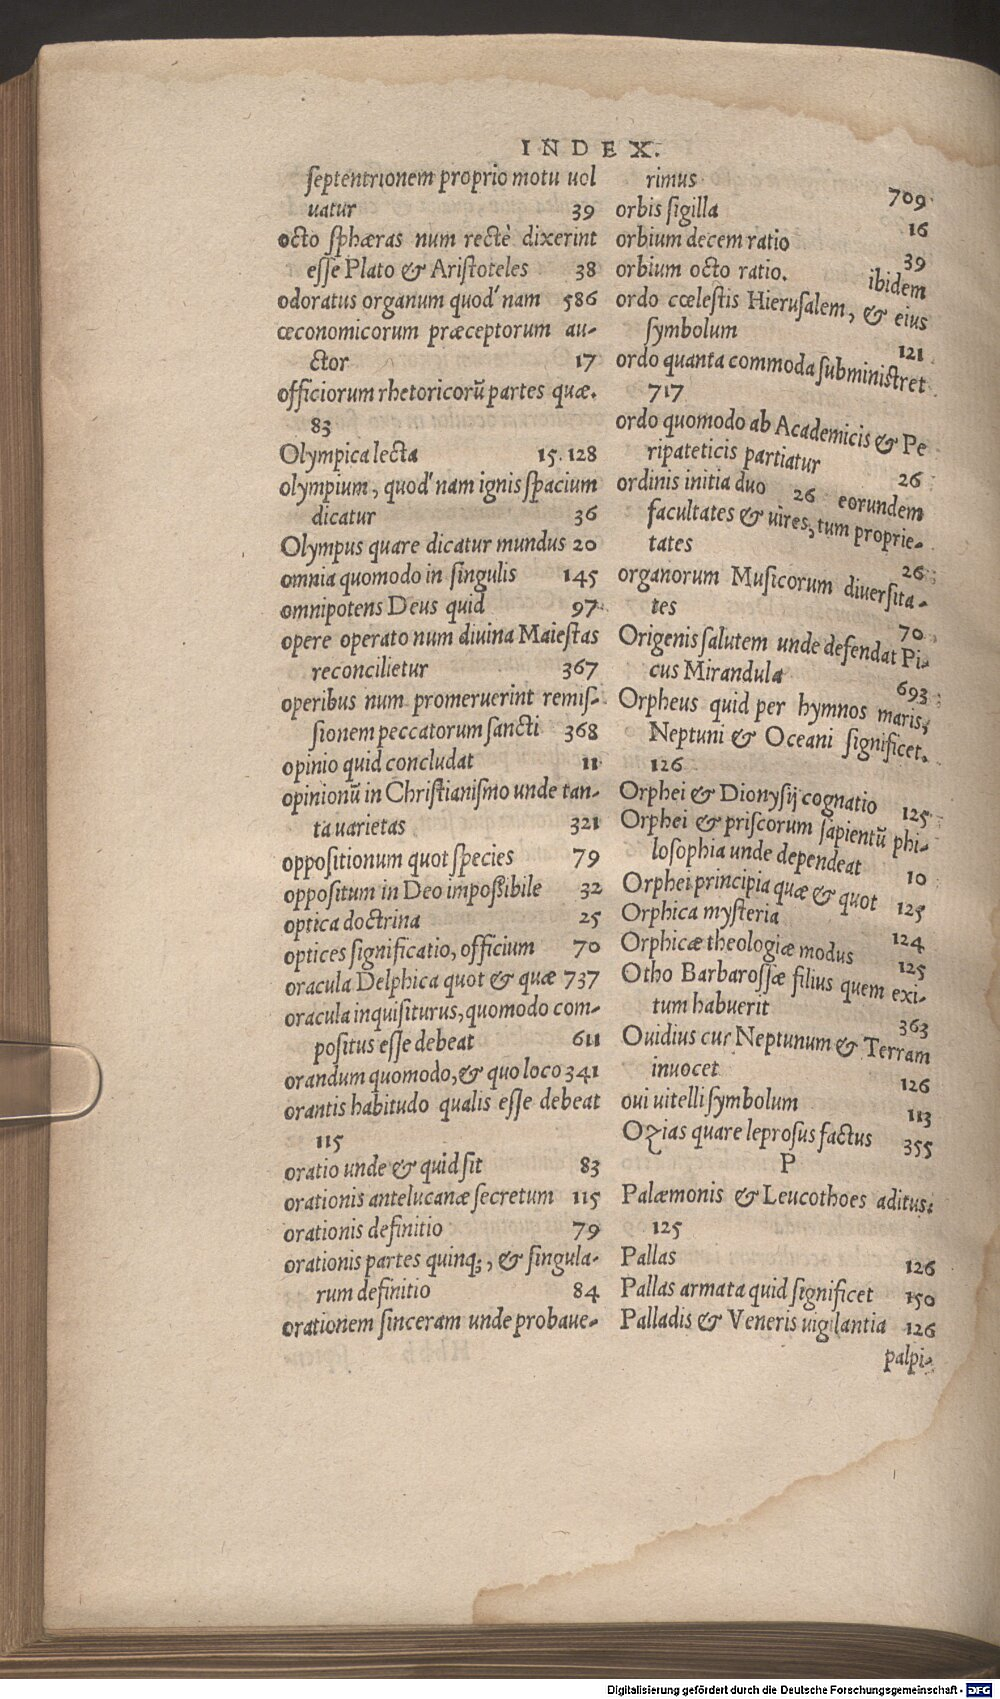 INDEX.
septentrionem proprio motu uol
uatur 39
octo sphæras num rectè dixerint
esse Plato & Aristoteles 38
odoratus organum quod'nam 586
œconomicorum præceptorum au-
ctor 17
officiorum rhetoricorũ partes quæ.
83
Olympica lecta 15. 128
olympium, quod'nam ignis spacium
dicatur 36
Olympus quare dicatur mundus 20
omnia quomodo in singulis 145
omnipotens Deus quid 97
opere operato num diuina Maiestas
reconcilietur 367
operibus num promeruerint remis-
sionem peccatorum sancti 368
opinio quid concludat 11
opinionũ in Christianismo unde tan-
ta uarietas 321
oppositionum quot species 79
oppositum in Deo impossibile 32
optica doctrina 25
optices significatio, officium 70
oracula Delphica quot & quæ 737
oracula inquisiturus, quomodo com-
positus esse debeat 611
orandum quomodo, & quo loco 341
orantis habitudo qualis esse debeat
115
oratio unde & quid sit 83
orationis antelucanæ secretum 115
orationis definitio 79
orationis partes quinq;, & singula-
rum definitio 84
orationem sinceram unde probaue-
rimus 709
orbis sigilla 16
orbium decem ratio 39
orbium octo ratio. ibidem
ordo cœlestis Hierusalem, & eius
symbolum 121
ordo quanta commoda subministret
717
ordo quomodo ab Academicis & Pe
ripateticis partiatur 26
ordinis initia duo 26 eorundem
facultates & uires, tum proprie-
tates 26
organorum Musicorum diuersita-
tes 70
Origenis salutem unde defendat Pi-
cus Mirandula 693
Orpheus quid per hymnos maris,
Neptuni & Oceani significet.
126
Orphei & Dionysij cognatio 125
Orphei & priscorum sapientũ phi-
losophia unde dependeat 10
Orphei principia quæ & quot 125
Orphica mysteria 124
Orphicæ theologiæ modus 125
Otho Barbarossæ filius quem exi-
tum habuerit 363
Ouidius cur Neptunum & Terram
inuocet 126
oui uitelli symbolum 113
Ozias quare leprosus factus 355
P
Palæmonis & Leucothoes aditus.
125
Pallas 126
Pallas armata quid significet 150
Palladis & Veneris uigilantia 126
palpi-
Digitalisierung gefördert durch die Deutsche Forschungsgemeinschaft - DFG